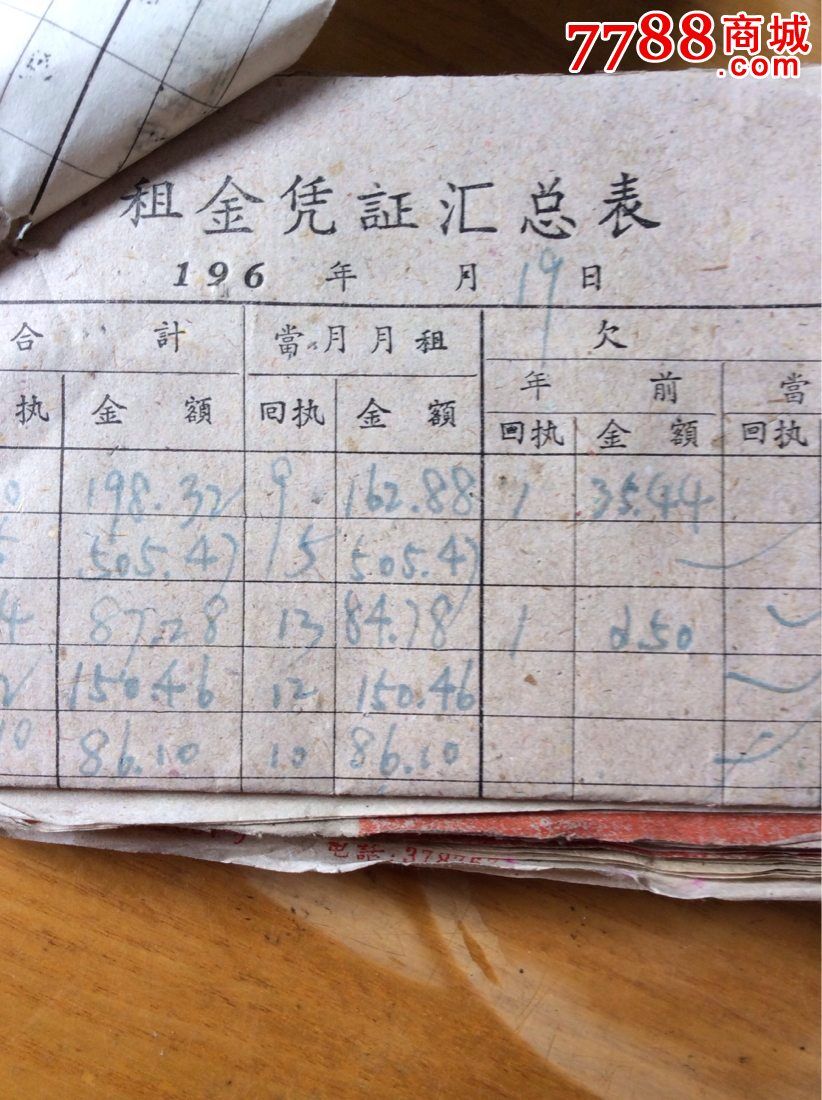 7788商城
.com
租金凭証汇总表
196 年 月 19 日
合計 當月月租 欠
年前 當
执 金額 回执 金額 回执 金額 回执
0 198.32 9 162.88 1 35.44
5 505.47 15 505.47
4 87.28 13 84.78 1 2.50
2 150.46 12 150.46
10 86.10 10 86.10
电話:3787